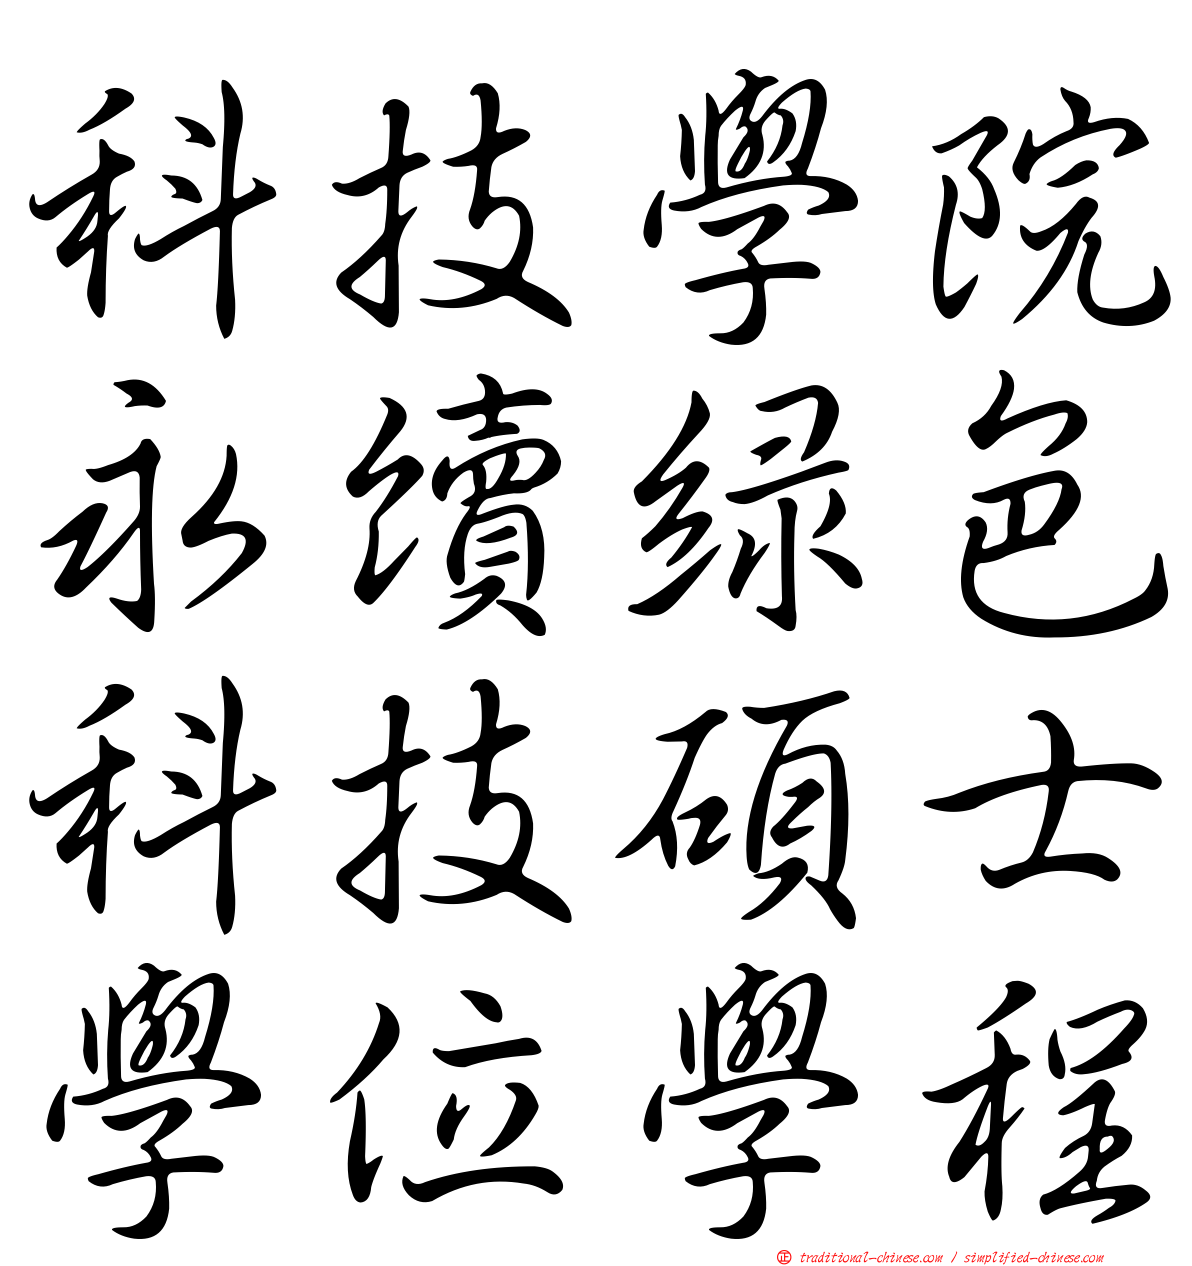 科技學院
永續綠色
科技碩士
學位學程
正 traditional-chinese.com / simplified-chinese.com